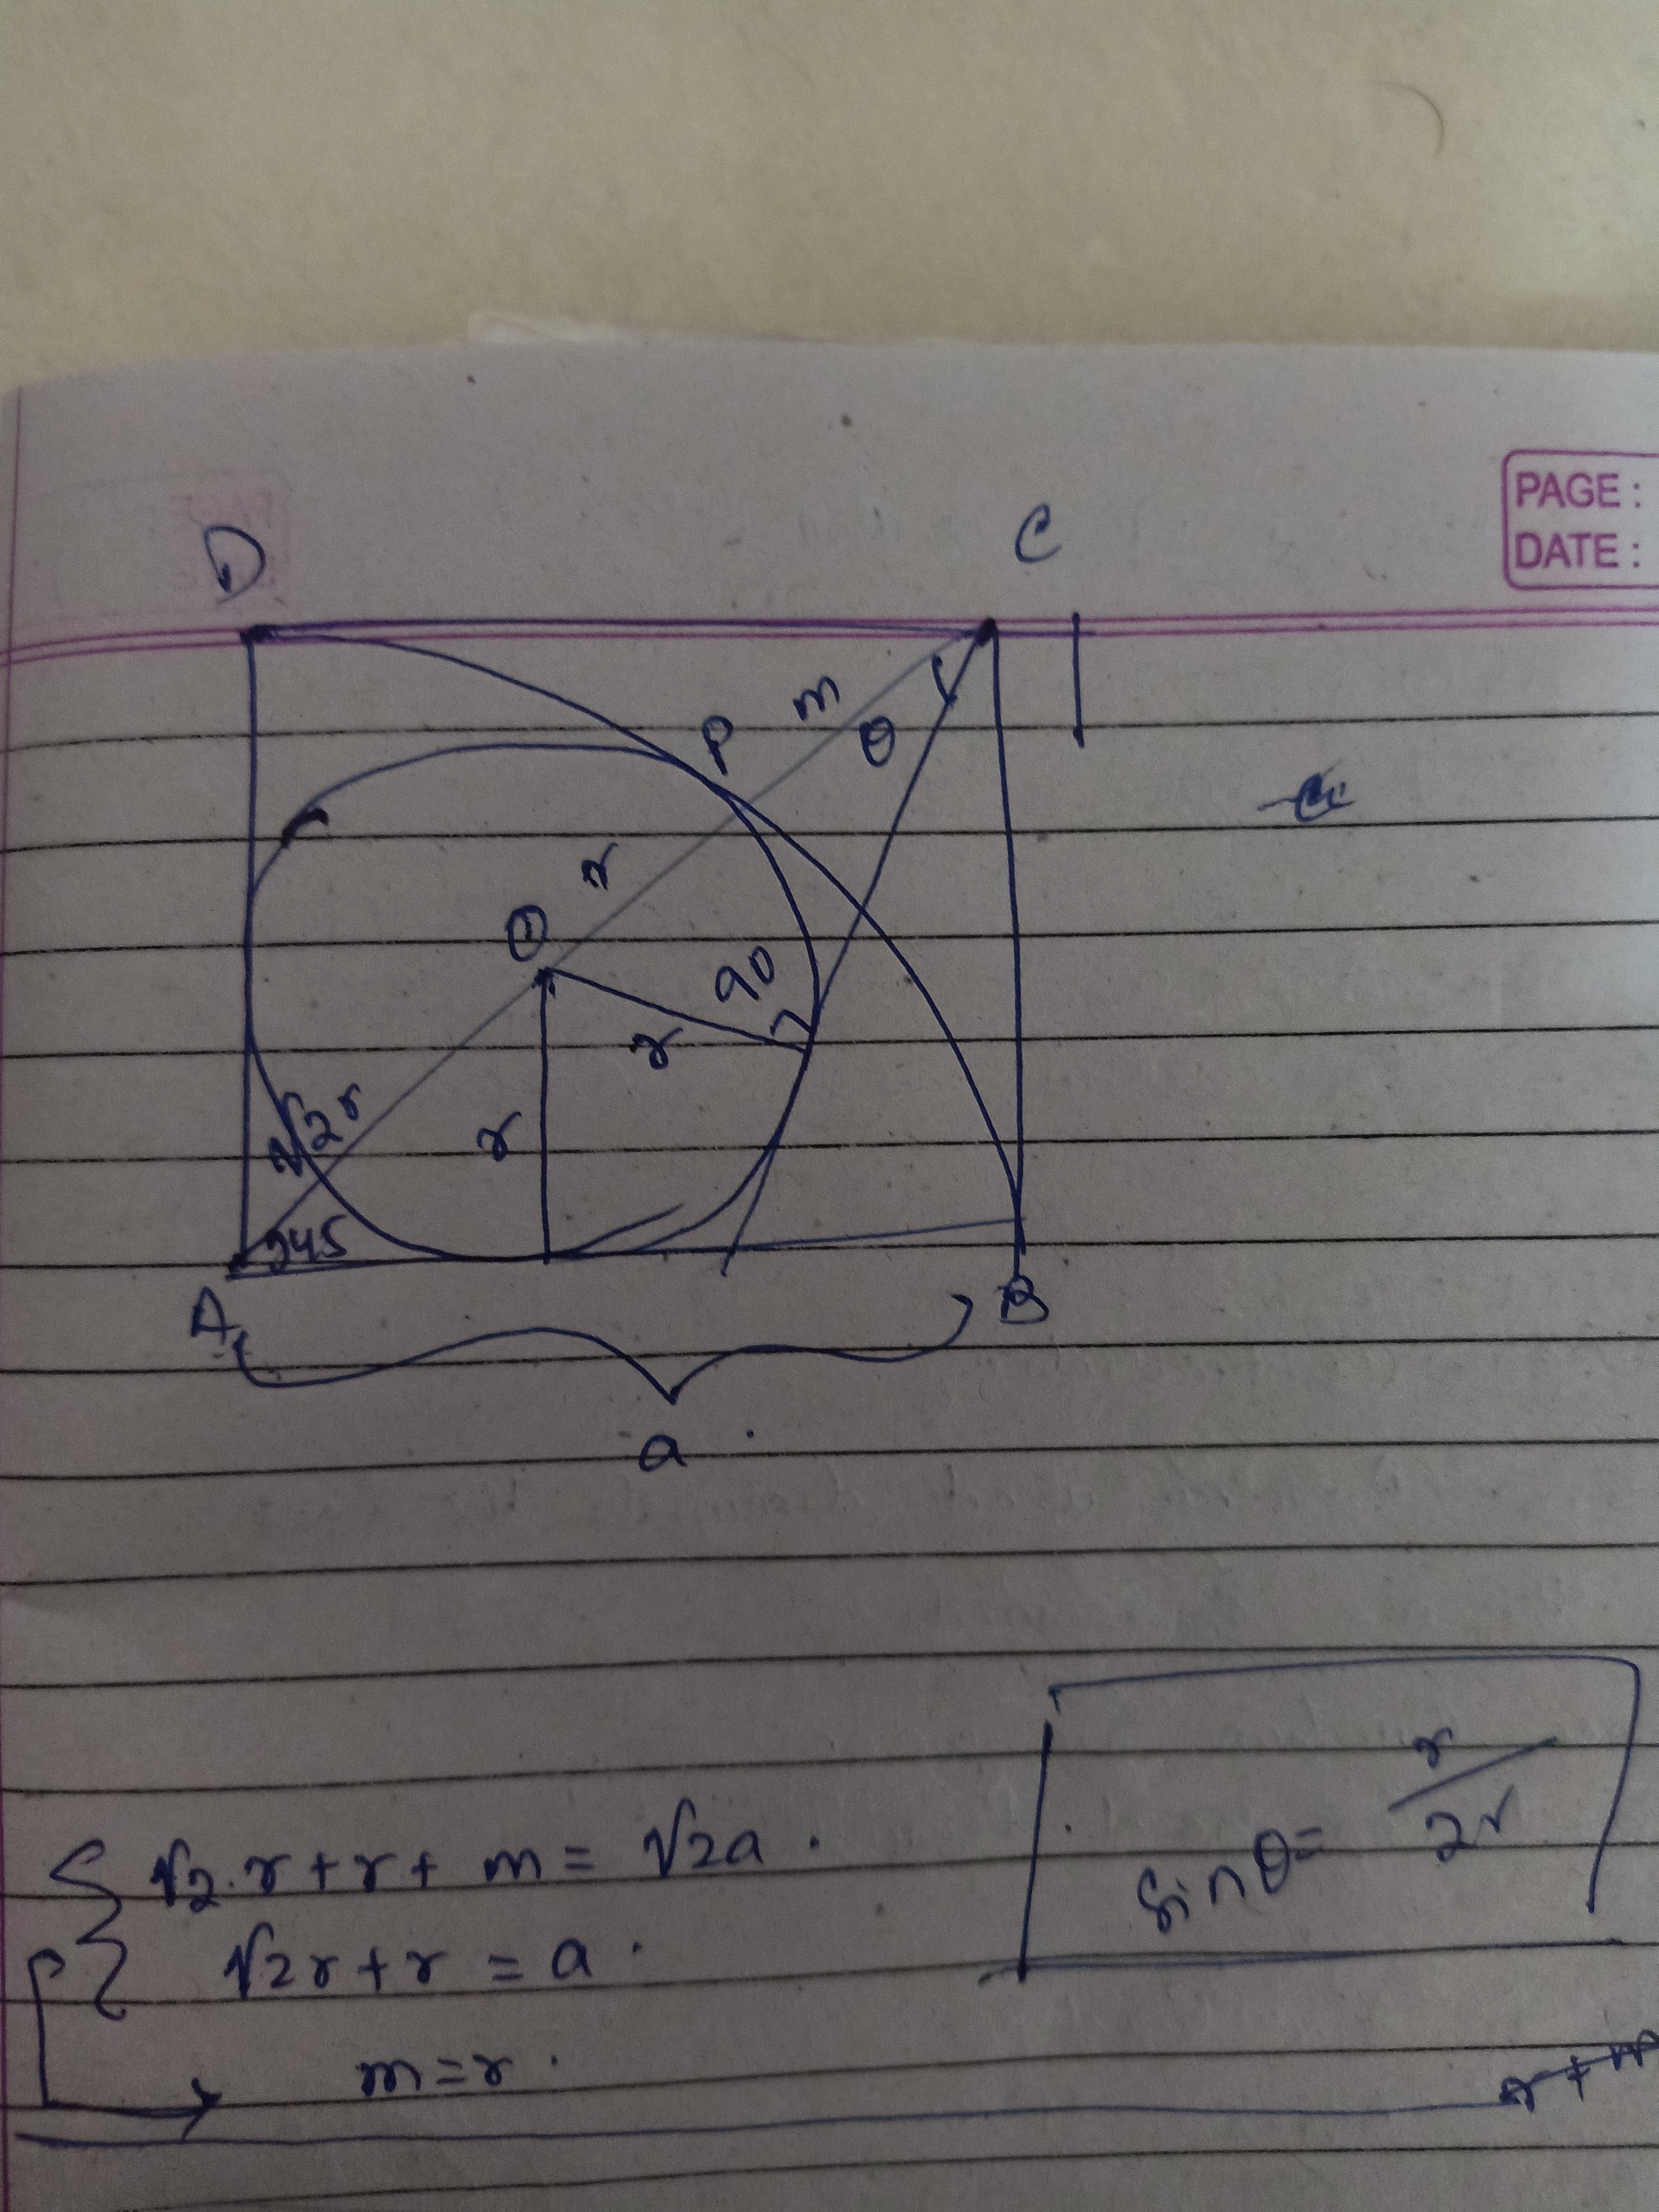 PAGE :
DATE :
D
C
m
P
θ
r
O
90
r
r
√2 r
45
A
B
a
√2.r + r + m = √2a .
√2r + r = a .
m = r .
sinθ = r/2r